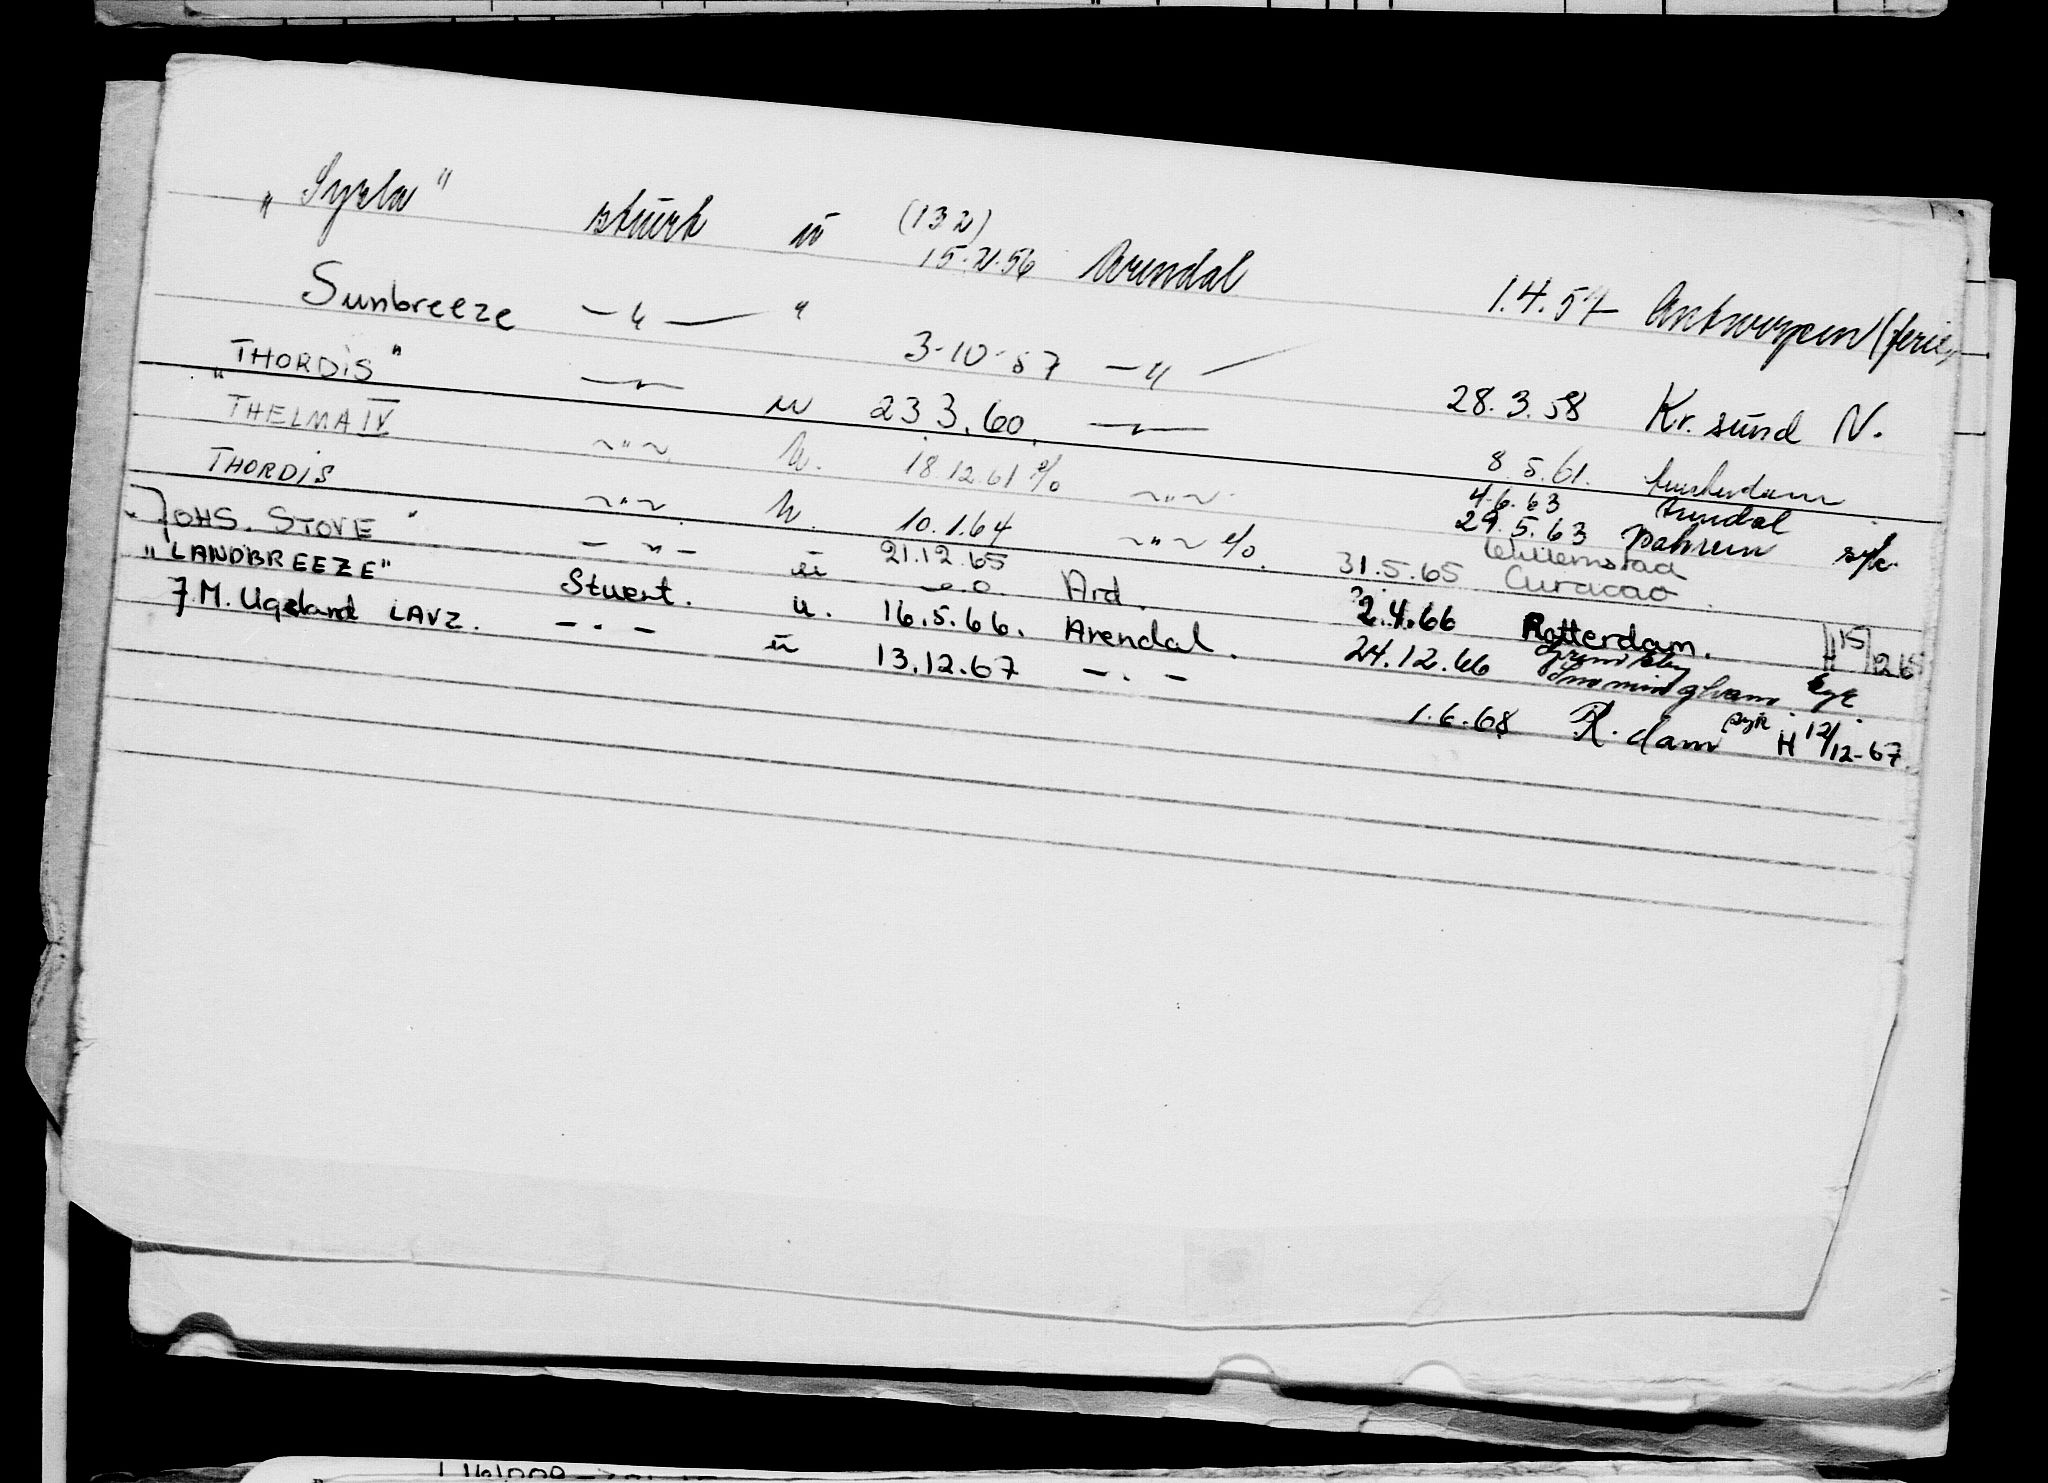 "Sysla" stürk u (132) 15.2.56 Arendal 1.4.57 Antwerpen (ferie)
Sunbreeze — " — " 3-10-57 — " — 28.3.58 Kr. sund N.
"THORDIS" — " — u 23 3.60. — " — 8 5.61. Amsterdam
THELMA IV ~ " ~ u. 18.12.61 e/o ~ " ~ 4.6.63 Arendal
29.5.63 Bahrein syk
THORDIS ~ " ~ u. 10.1.64 ~ " ~ e/o. 31.5.65 Willemstad Curacao
JOHS. STOVE " — " — u 21.12.65 e.o. Ard. 2.4.66 Rotterdam. H 15/12 65
"LANDBREEZE" Stuert. u. 16.5.66. Arendal. 24.12.66 syk
J.M. Ugeland LAVZ. — " — u 13.12.67 — " — 1.6.68 R.dam syk H 12/12-67.